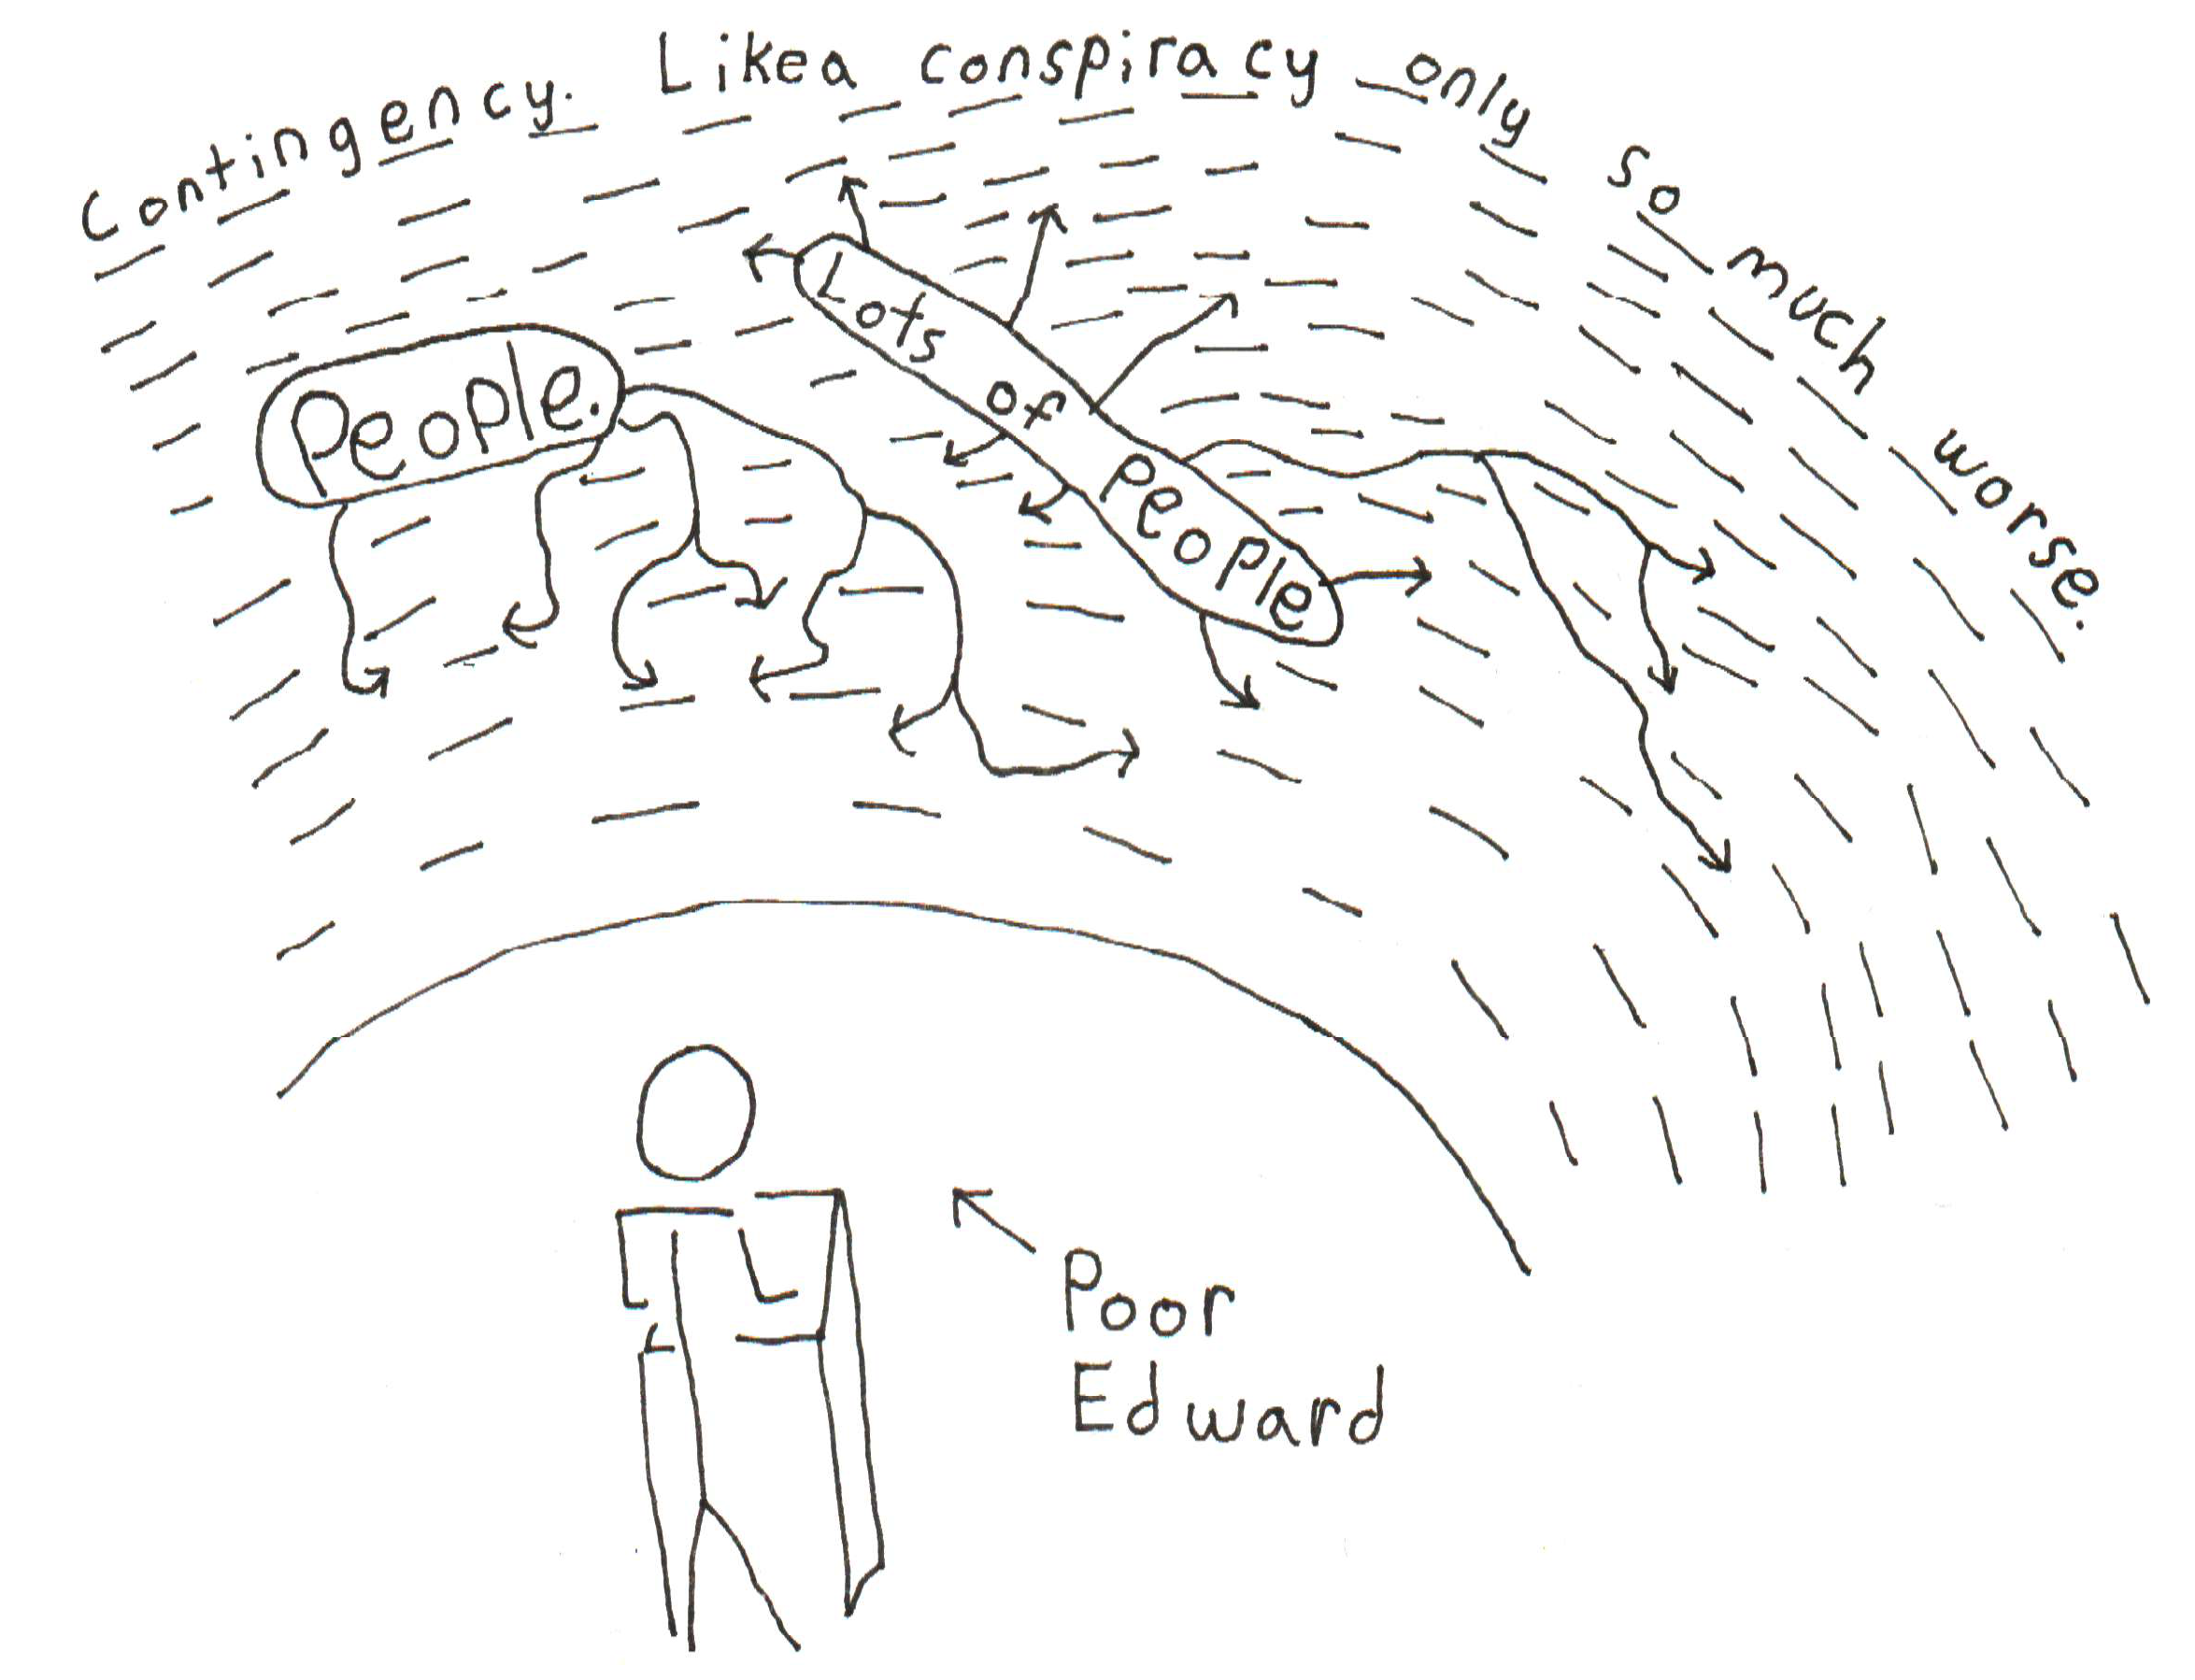 Contingency. Like a conspiracy only so much worse.
People.
Lots of People
Poor
Edward